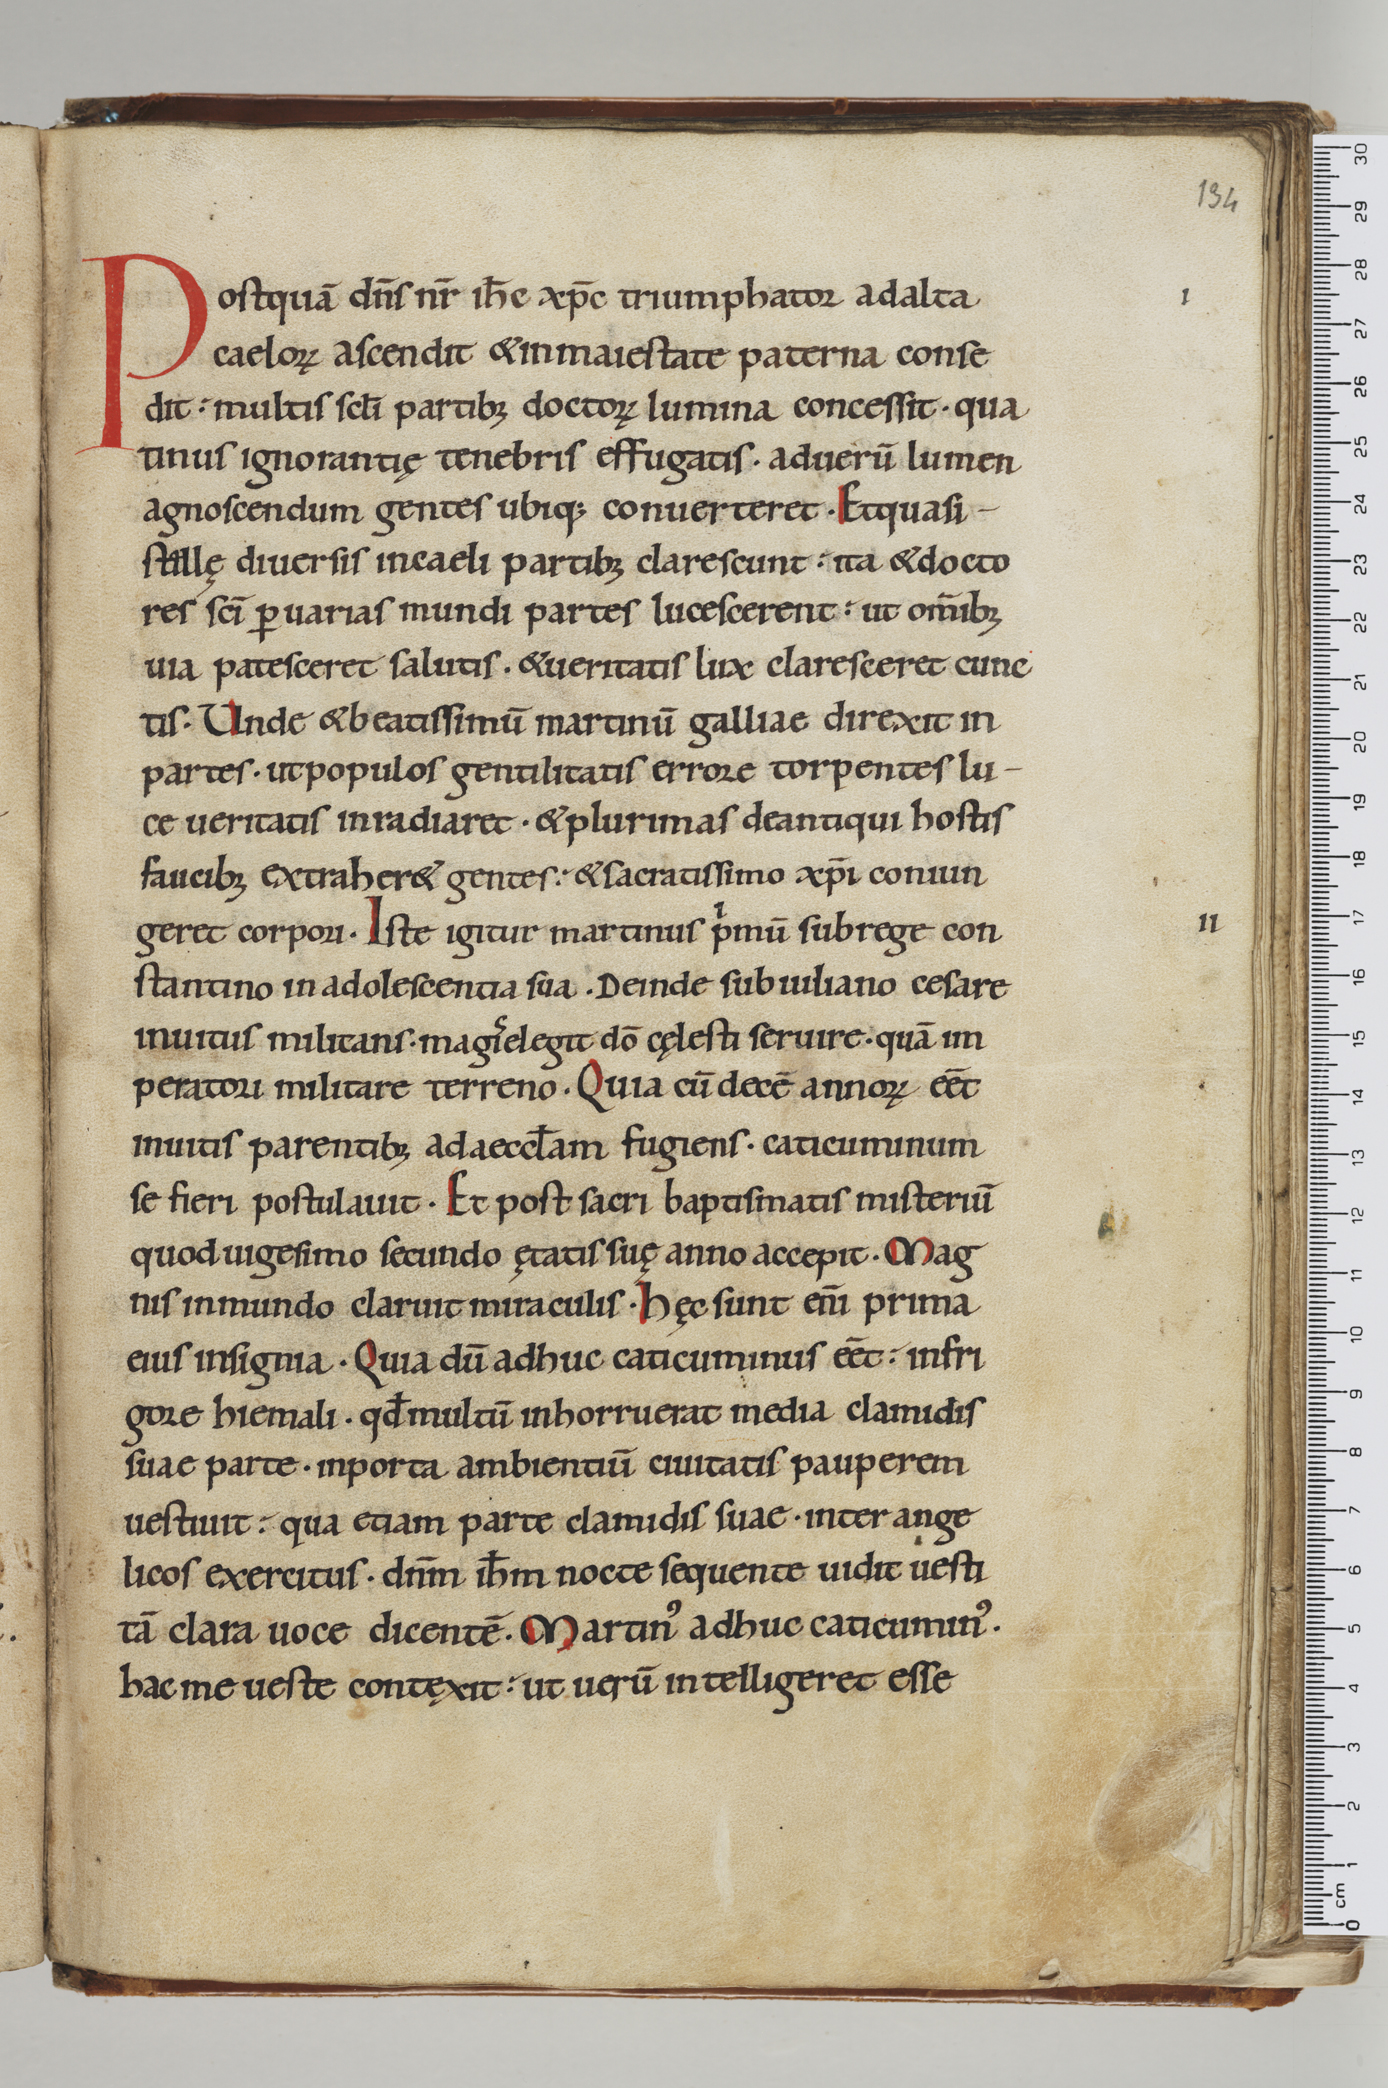 134
Postquā dn̄s nr̄ ih̄c xp̄c triumphator adalta I
caeloꝝ ascendit &inmaiestate paterna conse
dit· multis scłi partibꝫ doctoꝝ lumina concessit· qua
tinus ignorantię tenebris effugatis· aduerū lumen
agnoscendum gentes ubiqꝫ conuerteret· Etquasi -
stellę diuersis incaeli partibꝫ clarescunt· ita &docto
res sc̄i ꝑuarias mundi partes lucescerent· ut om̄ibꝫ
uia patesceret salutis· &ueritatis lux claresceret cunc
tis· Unde &beatissimū martinū galliae direxit in
partes· utpopulos gentilitatis errore torpentes lu-
ce ueritatis inradiaret· &plurimas deantiqui hostis
faucibꝫ extraher& gentes· &sacratissimo xp̄i coniun
geret corpori· Iste igitur martinus pͥmū subrege con II
stantino inadolescentia sua· Deinde subiuliano cesare
inuitus militans· magiͨelegit dō cęlesti seruire· quā im
peratori militare terreno· Quia cū decē annoꝝ eēt
inuitis parentibꝫ adaeccłam fugiens· caticuminum
se fieri postulauit· Et post sacri baptismatis misteriū
quoduigesimo secundo ętatis suę anno accepit· Mag
nis inmundo claruit miraculis· Hęc sunt eni̅ prima
eius insignia· Quia dū adhuc caticuminus eēt· infri
gore hiemali· qđmultū inhorruerat media clamidis
suae parte· inporta ambientiū ciuitatis pauperem
uestiuit· qua etiam parte clamidis suae· inter ange
licos exercitus· dn̄m ih̄m nocte sequente uidit uesti
tā clara uoce dicentē· Martinꝰ adhuc caticuminꝰ·
hac me ueste contęxit· ut uerū intelligeret esse